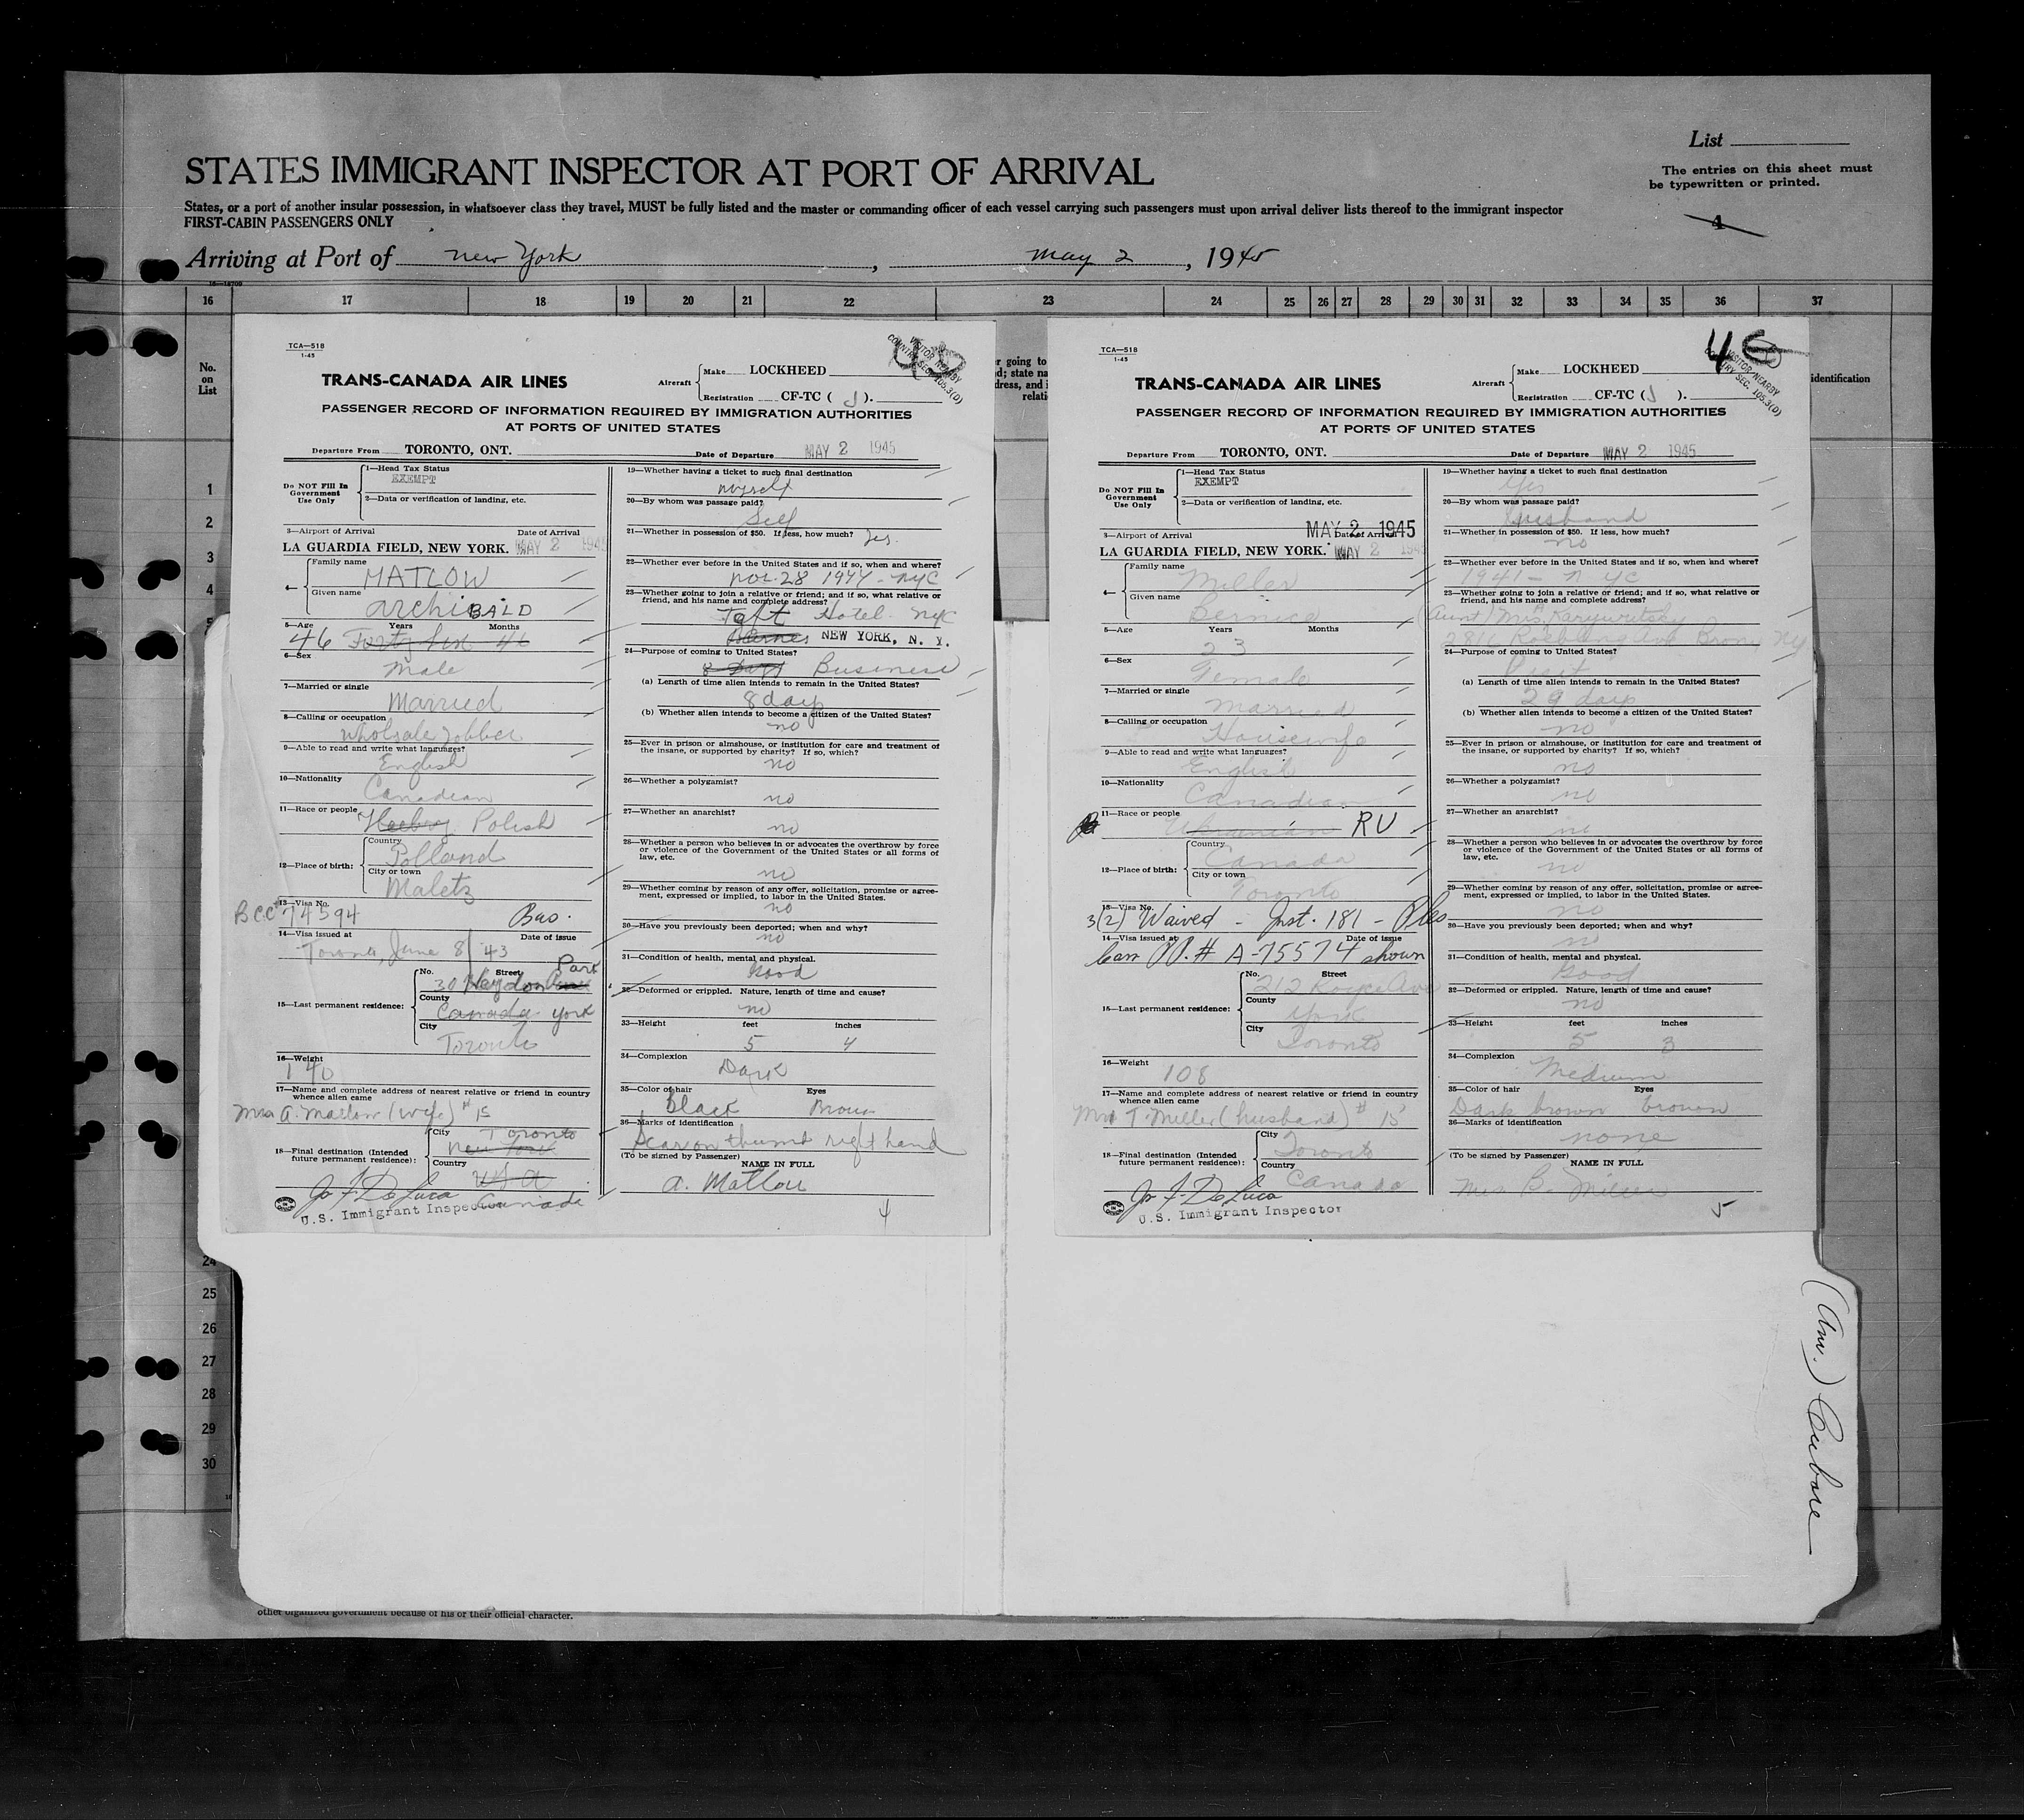 List
STATES IMMIGRANT INSPECTOR AT PORT OF ARRIVAL
The entries on this sheet must
be typewritten or printed.
States, or a port of another insular possession, in whatsoever class they travel, MUST be fully listed and the master or commanding officer of each vessel carrying such passengers must upon arrival deliver lists thereof to the immigrant inspector
FIRST-CABIN PASSENGERS ONLY
4
Arriving at Port of New York, May 2, 1945
16 17 18 19 20 21 22 23 24 25 26 27 28 29 30 31 32 33 34 35 36 37
No.
on
List
1
2
3
4
5
TCA—518
1-45
TRANS-CANADA AIR LINES
Aircraft Make LOCKHEED
Registration CF-TC ( J ).
VISITOR NEARBY
COUNTRY SEC. 105.3(D)
PASSENGER RECORD OF INFORMATION REQUIRED BY IMMIGRATION AUTHORITIES
AT PORTS OF UNITED STATES
Departure From TORONTO, ONT. Date of Departure MAY 2 1945
Do NOT Fill In
Government
Use Only
1—Head Tax Status
EXEMPT
2—Data or verification of landing, etc.
3—Airport of Arrival Date of Arrival
LA GUARDIA FIELD, NEW YORK. MAY 2 1945
4— Family name
MATLOW
Given name
ArchiBALD
5—Age Years Months
46 Forty six 46
6—Sex
Male
7—Married or single
Married
8—Calling or occupation
Wholsale Jobber
9—Able to read and write what languages?
English
10—Nationality
Canadian
11—Race or people
Polish
12—Place of birth:
Country
Polland
City or town
Maletz
13—Visa No.
BCC# 74594 Bus.
14—Visa issued at Date of issue
Toronto, June 8/43
15—Last permanent residence:
No. Street
30 Heydon Park
County
Canada York
City
Toronto
16—Weight
140
17—Name and complete address of nearest relative or friend in country
whence alien came
Mrs A. Matlow (Wife) # 15
18—Final destination (Intended
future permanent residence):
City Toronto
New York
Country
USA
Canada
Jo F. De Luca
U.S. Immigrant Inspector
19—Whether having a ticket to such final destination
myself
20—By whom was passage paid?
Self
21—Whether in possession of $50. If less, how much? Yes.
22—Whether ever before in the United States and if so, when and where?
Nov. 28 1944 - NYC
23—Whether going to join a relative or friend; and if so, what relative or
friend, and his name and complete address?
Taft Hotel NYC
NEW YORK, N. Y.
24—Purpose of coming to United States?
8 days Business
(a) Length of time alien intends to remain in the United States?
8 days
(b) Whether alien intends to become a citizen of the United States?
no
25—Ever in prison or almshouse, or institution for care and treatment of
the insane, or supported by charity? If so, which?
no
26—Whether a polygamist?
no
27—Whether an anarchist?
no
28—Whether a person who believes in or advocates the overthrow by force
or violence of the Government of the United States or all forms of
law, etc.
no
29—Whether coming by reason of any offer, solicitation, promise or agree-
ment, expressed or implied, to labor in the United States.
no
30—Have you previously been deported; when and why?
no
31—Condition of health, mental and physical.
Good
32—Deformed or crippled. Nature, length of time and cause?
no
33—Height feet inches
5 4
34—Complexion
Dark
35—Color of hair Eyes
black Brown
36—Marks of identification
Scar on thumb right hand
(To be signed by Passenger)
NAME IN FULL
A. Matlow
4
r going to
d; state na
dress, and i
relati
TCA—518
1-45
46
TRANS-CANADA AIR LINES
Aircraft Make LOCKHEED
Registration CF-TC ( J ).
VISITOR NEARBY
COUNTRY SEC. 105.3(D)
identification
PASSENGER RECORD OF INFORMATION REQUIRED BY IMMIGRATION AUTHORITIES
AT PORTS OF UNITED STATES
Departure From TORONTO, ONT. Date of Departure MAY 2 1945
Do NOT Fill In
Government
Use Only
1—Head Tax Status
EXEMPT
2—Data or verification of landing, etc.
MAY 2 1945
3—Airport of Arrival Date of Arrival
LA GUARDIA FIELD, NEW YORK. MAY 2 1945
4— Family name
Miller
Given name
Bernice
5—Age Years Months
23
6—Sex
Female
7—Married or single
Married
8—Calling or occupation
Housewife
9—Able to read and write what languages?
English
10—Nationality
Canadian
11—Race or people
Ukranian RU
12—Place of birth:
Country
Canada
City or town
Toronto
13—Visa No.
3(2) Waived - Inst. 181 - Ples
14—Visa issued at Date of issue
Can P. # A-75574 shown
15—Last permanent residence:
No. Street
212 Royce Ave
County
York
City
Toronto
16—Weight
108
17—Name and complete address of nearest relative or friend in country
whence alien came
Mr T. Miller (husband) # 15
18—Final destination (Intended
future permanent residence):
City
Toronto
Country
Canada
Jo F. De Luca
U.S. Immigrant Inspector
19—Whether having a ticket to such final destination
Yes
20—By whom was passage paid?
Husband
21—Whether in possession of $50. If less, how much?
no
22—Whether ever before in the United States and if so, when and where?
1941 - N YC
23—Whether going to join a relative or friend; and if so, what relative or
friend, and his name and complete address?
(Aunt) Mrs.
Bronx NY
24—Purpose of coming to United States?
Visit
(a) Length of time alien intends to remain in the United States?
29 days
(b) Whether alien intends to become a citizen of the United States?
no
25—Ever in prison or almshouse, or institution for care and treatment of
the insane, or supported by charity? If so, which?
no
26—Whether a polygamist?
no
27—Whether an anarchist?
no
28—Whether a person who believes in or advocates the overthrow by force
or violence of the Government of the United States or all forms of
law, etc.
no
29—Whether coming by reason of any offer, solicitation, promise or agree-
ment, expressed or implied, to labor in the United States.
no
30—Have you previously been deported; when and why?
no
31—Condition of health, mental and physical.
Good
32—Deformed or crippled. Nature, length of time and cause?
no
33—Height feet inches
5 3
34—Complexion
Medium
35—Color of hair Eyes
Dark brown brown
36—Marks of identification
none
(To be signed by Passenger)
NAME IN FULL
Mrs B. Miller
5
24
25
26
27
28
29
30
other organized government because of his or their official character.